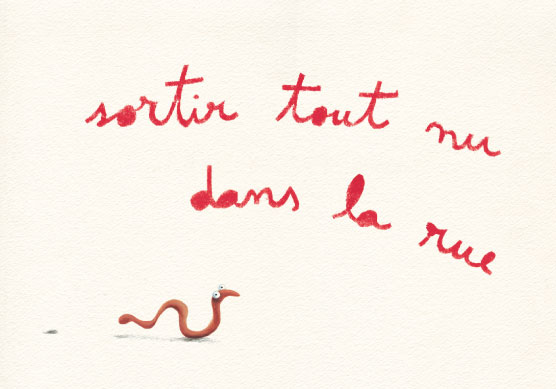 sortir tout nu
dans la rue